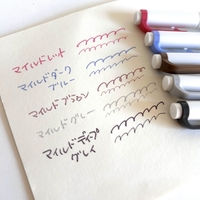 マイルドレッド
マイルドダーク
ブルー
マイルドブラウン
マイルドグレー
マイルドディープ
グレイ